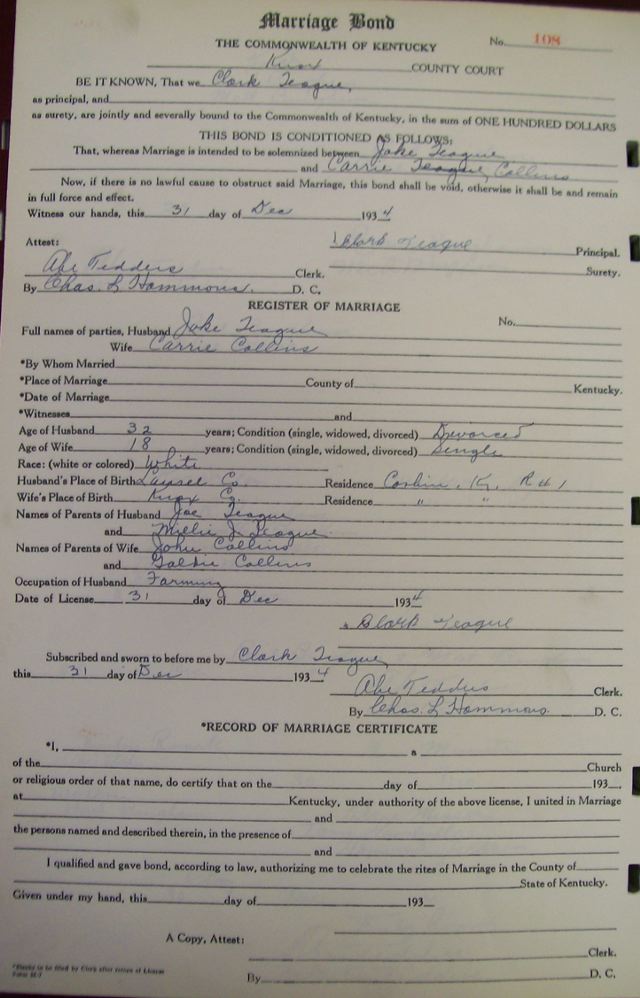 Marriage Bond
THE COMMONWEALTH OF KENTUCKY
No. 108
Knox COUNTY COURT
BE IT KNOWN, That we Clark Teague,
as principal, and
as surety, are jointly and severally bound to the Commonwealth of Kentucky, in the sum of ONE HUNDRED DOLLARS
THIS BOND IS CONDITIONED AS FOLLOWS:
That, whereas Marriage is intended to be solemnized between Jake Teague
and Carrie Teague Collins
Now, if there is no lawful cause to obstruct said Marriage, this bond shall be void, otherwise it shall be and remain
in full force and effect.
Witness our hands, this 31 day of Dec 1934
Attest: Clark Teague Principal.
Abe Tedders Clerk. Surety.
By Chas. L Hammons. D. C.
REGISTER OF MARRIAGE
No.
Full names of parties, Husband Jake Teague
Wife Carrie Collins
*By Whom Married
*Place of Marriage County of Kentucky.
*Date of Marriage
*Witnesses and
Age of Husband 32 years; Condition (single, widowed, divorced) Divorced
Age of Wife 18 years; Condition (single, widowed, divorced) Single
Race: (white or colored) White
Husband's Place of Birth Laurel Co. Residence Corbin, Ky, R#1
Wife's Place of Birth Knox Co. Residence " "
Names of Parents of Husband Joe Teague
and Millie J. Teague
Names of Parents of Wife John Collins
and Goldie Collins
Occupation of Husband Farming
Date of License 31 day of Dec 1934
Clark Teague
Subscribed and sworn to before me by Clark Teague
this 31 day of Dec 1934
Abe Tedders Clerk.
By Chas. L Hammons. D. C.
*RECORD OF MARRIAGE CERTIFICATE
*I, a
of the Church
or religious order of that name, do certify that on the day of 193 ,
at Kentucky, under authority of the above license, I united in Marriage
and
the persons named and described therein, in the presence of
and
I qualified and gave bond, according to law, authorizing me to celebrate the rites of Marriage in the County of
State of Kentucky.
Given under my hand, this day of 193
A Copy, Attest:
Clerk.
By D. C.
*Blanks to be filled by Clerk after return of License